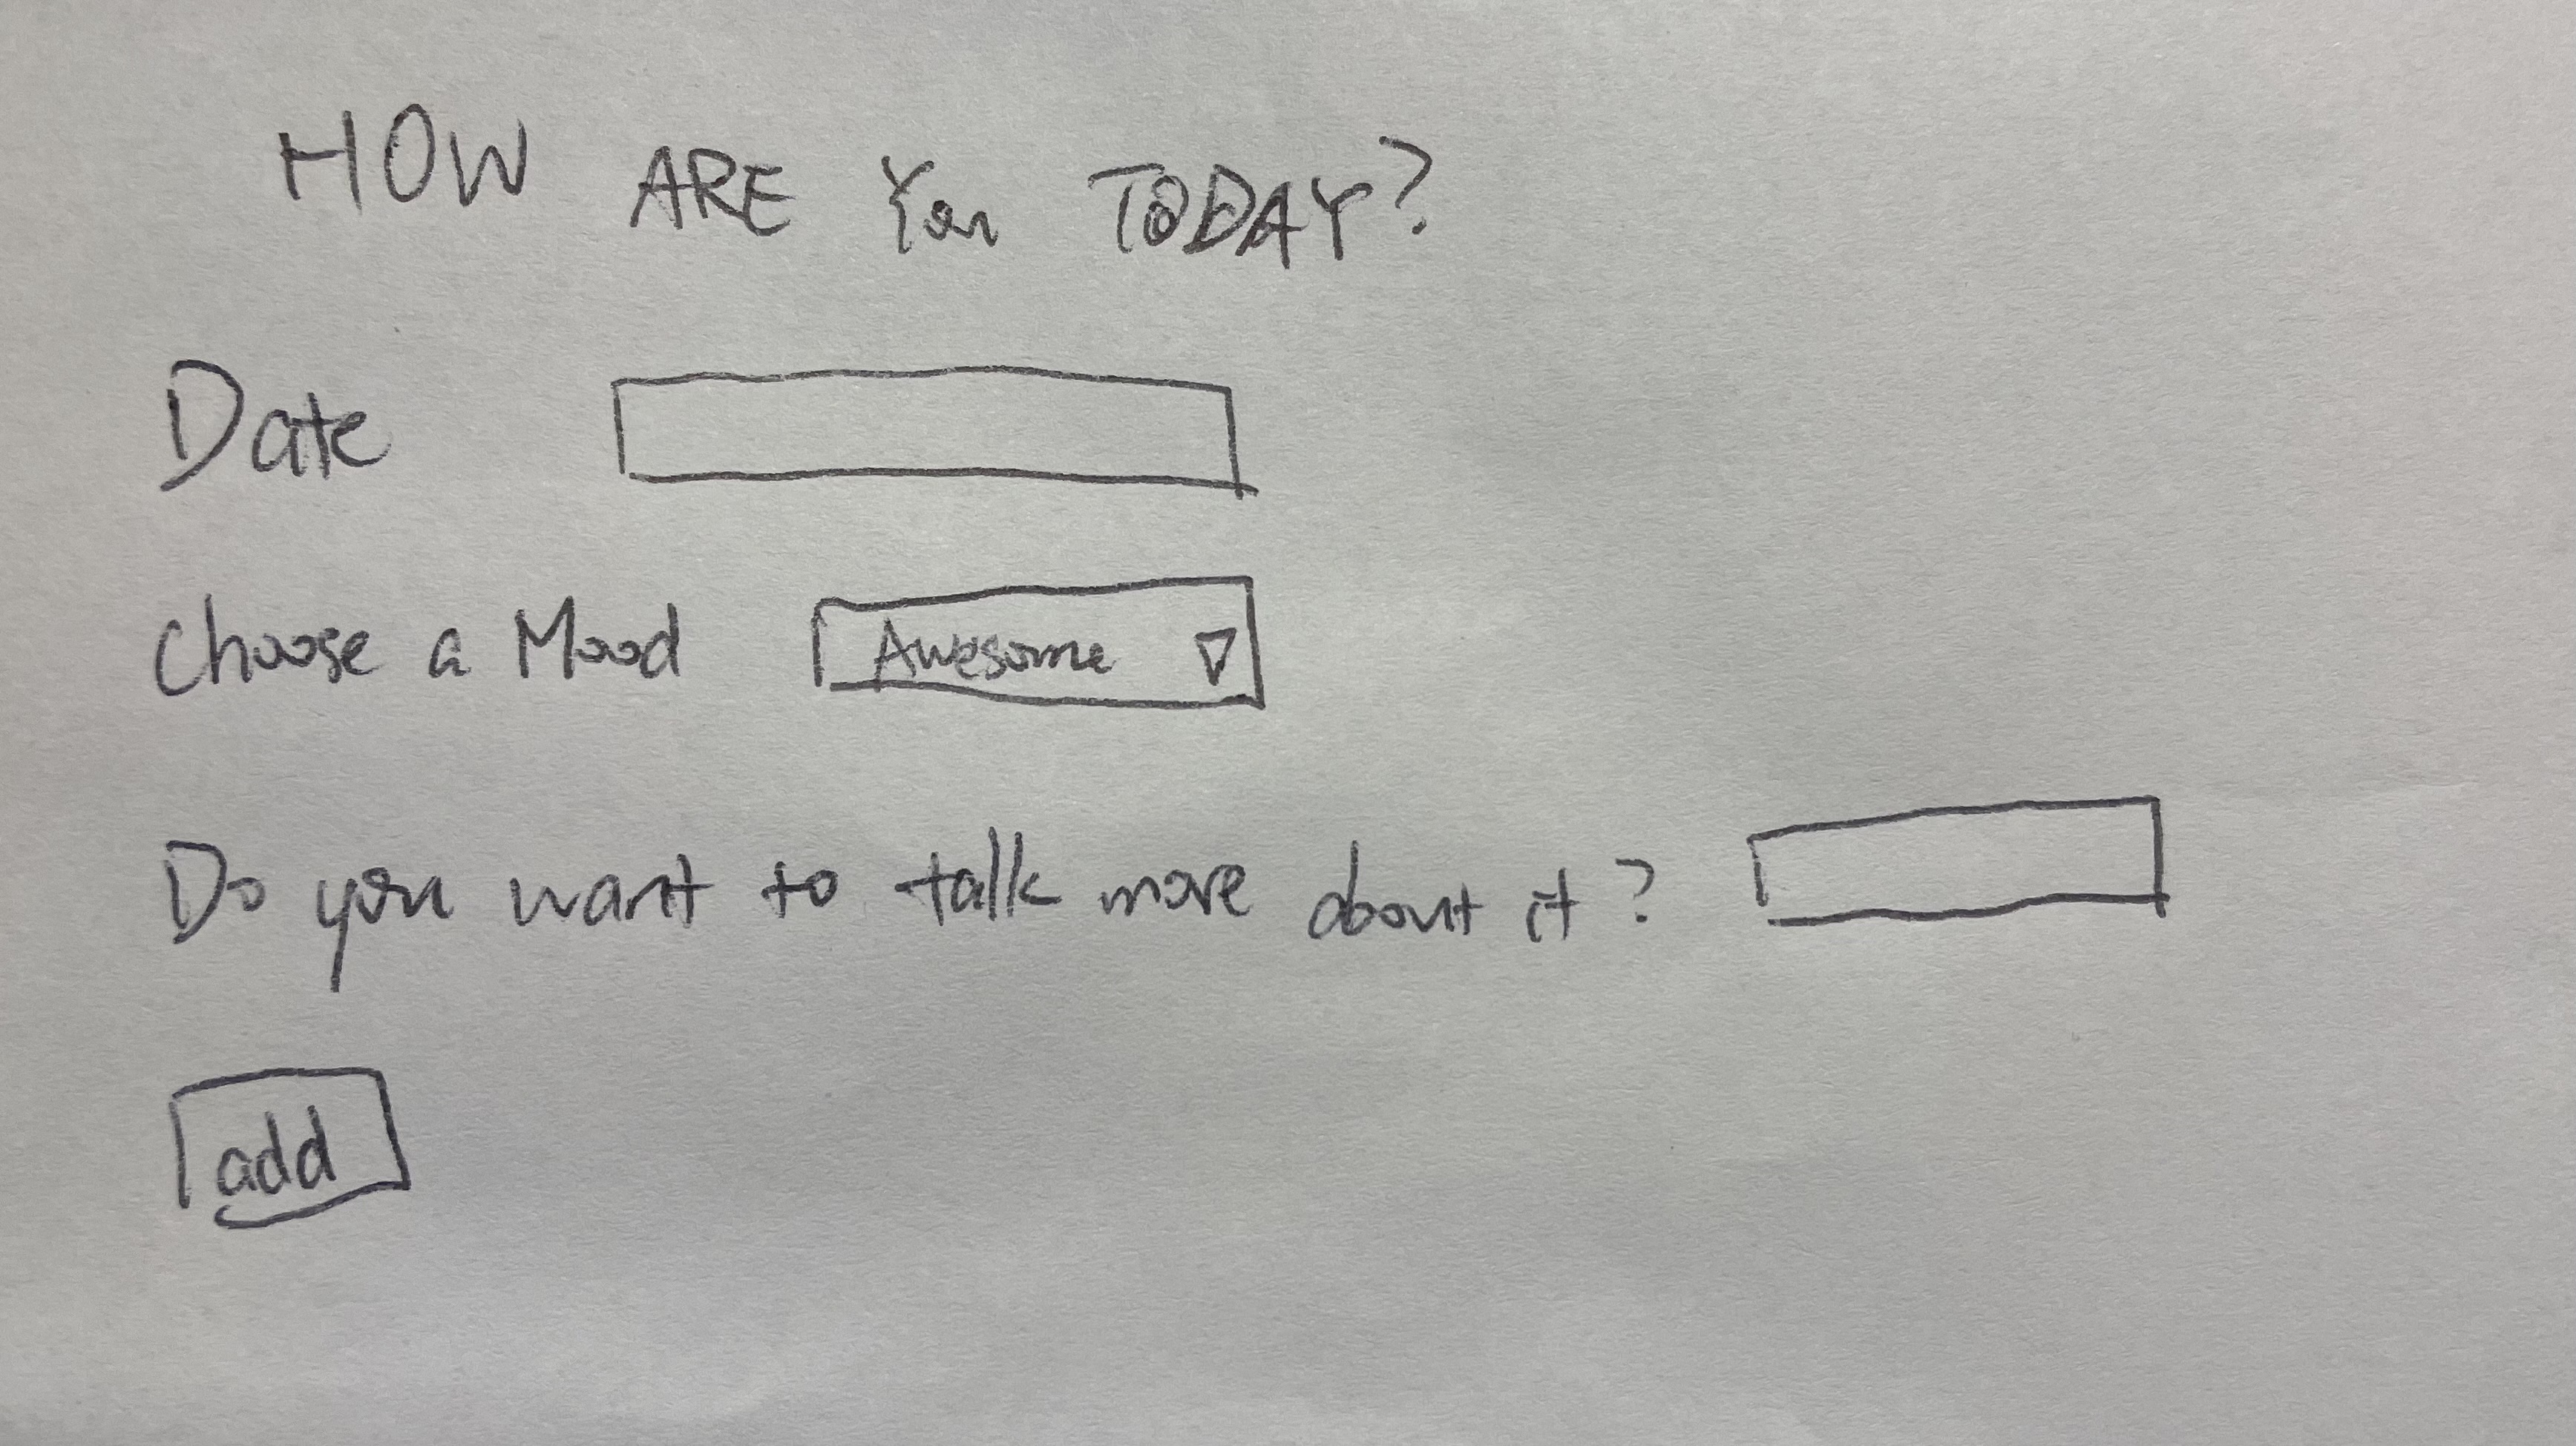 HOW ARE You TODAY?
Date
Choose a Mood Awesome
Do you want to talk more about it?
add